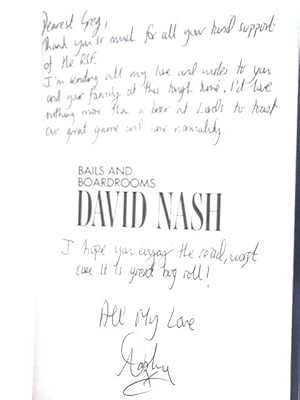 Dearest Greg,
Thank you so much for all your kind support
of the RSF.
I'm sending all my love and wishes to you
and your family at this tough time. I'd love
nothing more than a beer at Lords to toast
our great game and some normality
BAILS AND
BOARDROOMS
DAVID NASH
I hope you enjoy the read, worst
case it is great bog roll!
All My Love